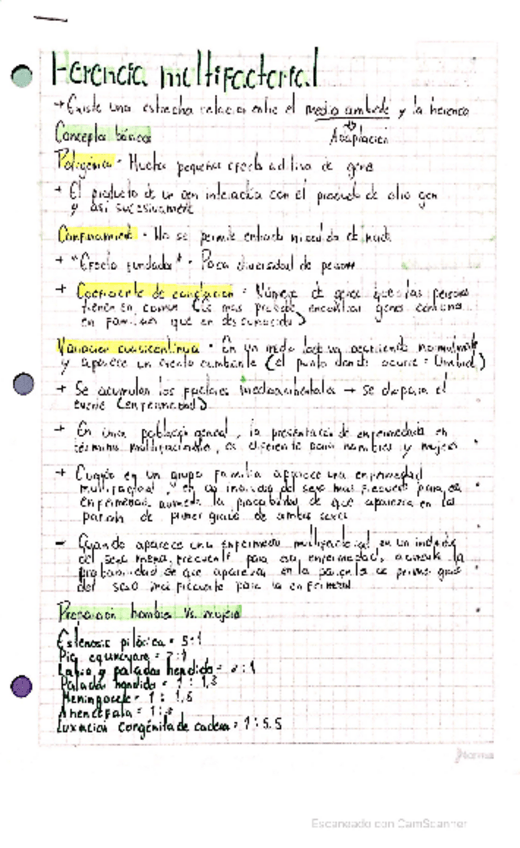 Herencia multifactorial
→ Existe una estrecha relación entre el medio ambiente y la herencia
Adaptación
Conceptos básicos
Poligénica - Muchos pequeños efectos aditivos de genes
+ El producto de un gen interactúa con el producto de otro gen
y así sucesivamente
- No se permite entrada ni salida de
+ "Efecto fundador" - Poca diversidad de
+ Coeficiente de correlación = Número de genes que las personas
tienen en común (es más probable encontrar genes comunes
en familiares que en desconocidos)
Variación cuasicontinua - En un medio ocurriendo normalmente
y aparece un evento cambiante (el punto donde ocurre = Umbral)
+ Se acumulan los factores medioambientales → se dispara el
evento (enfermedad)
+ En una población general, la presentación de enfermedades en
términos multifactoriales, es diferente para hombres y mujeres
+ Cuando en un grupo familiar aparece una enfermedad
multifactorial, y en un individuo del sexo más frecuente para esa
enfermedad, aumenta la probabilidad de que aparezca en los
parientes de primer grado de ambos sexos
- Cuando aparece una enfermedad multifactorial en un individuo
del sexo menos frecuente para esa enfermedad, aumenta la
probabilidad de que aparezca en los parientes de primer grado
del sexo más frecuente para la enfermedad
hombres Vs. mujeres
Estenosis pilórica = 5:1
Pie equinovaro = 2:1
Labio y paladar hendido = :1
Paladar hendido = 1 : 1,3
Meningocele = 1 : 1,5
= 1:
Luxación congénita de cadera = 1 : 5.5
Norma
Escaneado con CamScanner